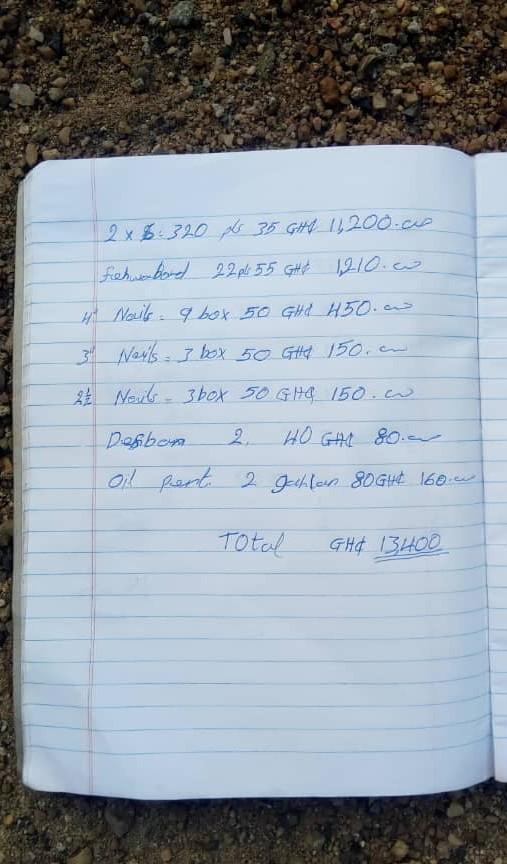 2 x 6 = 320 pls 35 GH¢ 11,200.00
22 pls 55 GH¢ 1,210.00
4" Nails = 9 box 50 GH¢ 450.00
3" Nails = 3 box 50 GH¢ 150.00
2½ Nails = 3 box 50 GH¢ 150.00
2. 40 GH¢ 80.00
Oil pent. 2 gahlan 80 GH¢ 160.00
TOtal GH¢ 13,400